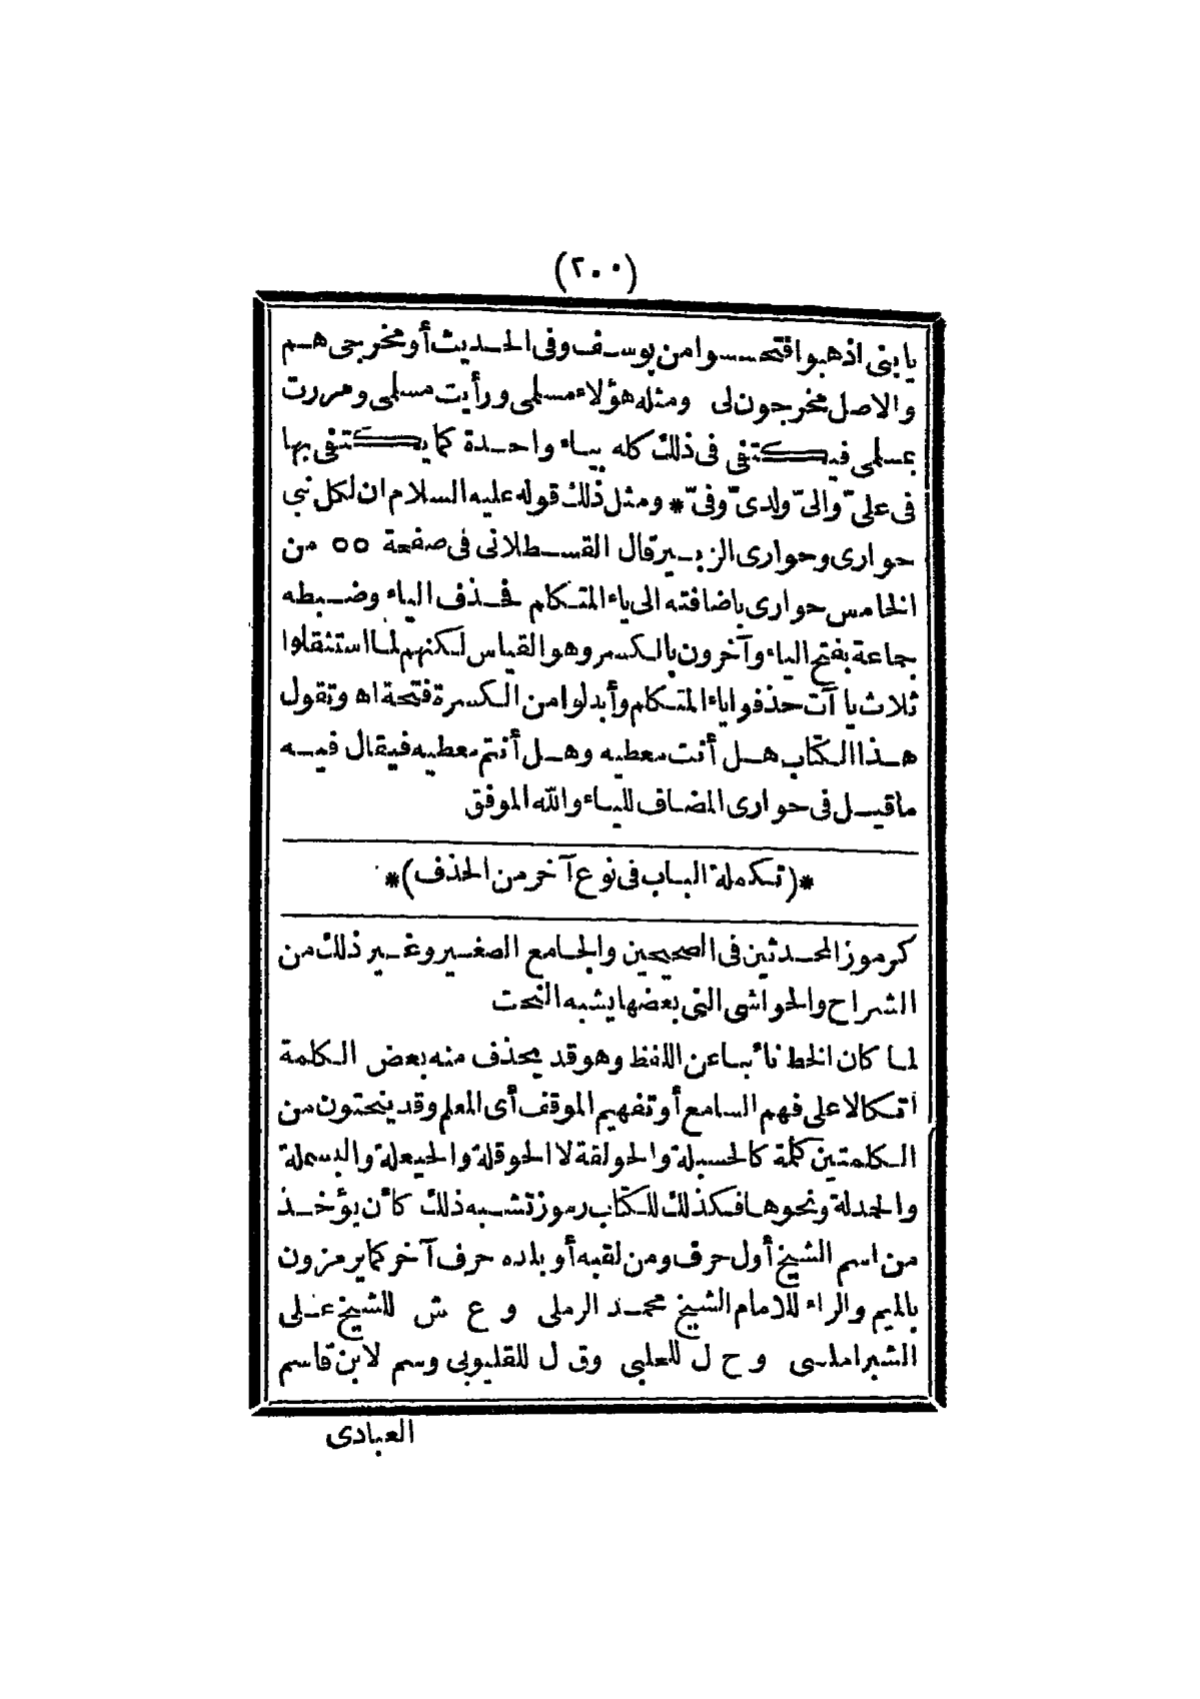 (٢٠٠)
يا بنى اذهبوا فتحسسوا من يوسف وفى الحديث أو مخرجى هم
والاصل مخرجون لى ومثله هؤلاء مسلمى ورأيت مسلمى ومررت
بمسلمى فيكتفى فى ذلك كله بياء واحدة كما يكتفى بها
فى علىّ والىّ ولدىّ وفىّ * ومثل ذلك قوله عليه السلام ان لكل نبى
حوارى وحوارى الزبير قال القسطلانى فى صفحة ٥٥ من
الخامس حوارى باضافته الى ياء المتكلم فحذف الياء وضبطه
جاعة بفتح الياء وآخرون بالكسر وهو القياس لكنهم لما استثقلوا
ثلاث يا آت حذفوا ياء المتكلم وأبدلوا من الكسرة فتحة اه وتقول
هذا الكتاب هل أنت معطيه وهل أنتم معطيه فيقال فيه
ما قيل فى حوارى المضاف للياء والله الموفق
*(تكملة الباب فى نوع آخر من الحذف)*
كرموز المحدثين فى الصحيحين والجامع الصغير وغير ذلك من
الشراح والحواشى التى بعضها يشبه النحت
لما كان الخط نائبا عن اللفظ وهو قد يحذف منه بعض الكلمة
اتكالا على فهم السامع أو تفهيم الموقف أى المعلم وقد ينحتون من
الكلمتين كلمة كالحسبلة والحولقة لا الحوقلة والحيعلة والبسملة
والحمدلة ونحوها فكذلك للكتاب رموز تشبه ذلك كأن يؤخذ
من اسم الشيخ أول حرف ومن لقبه أو بلده حرف آخر كما يرمزون
بالميم والراء للامام الشيخ محمد الرملى و ع ش للشيخ على
الشبراملسى و ح ل للحلبى وق ل للقليوبى وسم لابن قاسم
العبادى